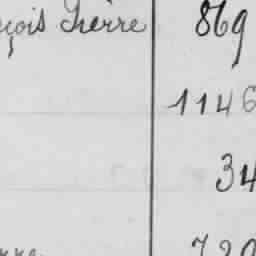 çois Pierre 869
1146
34
720